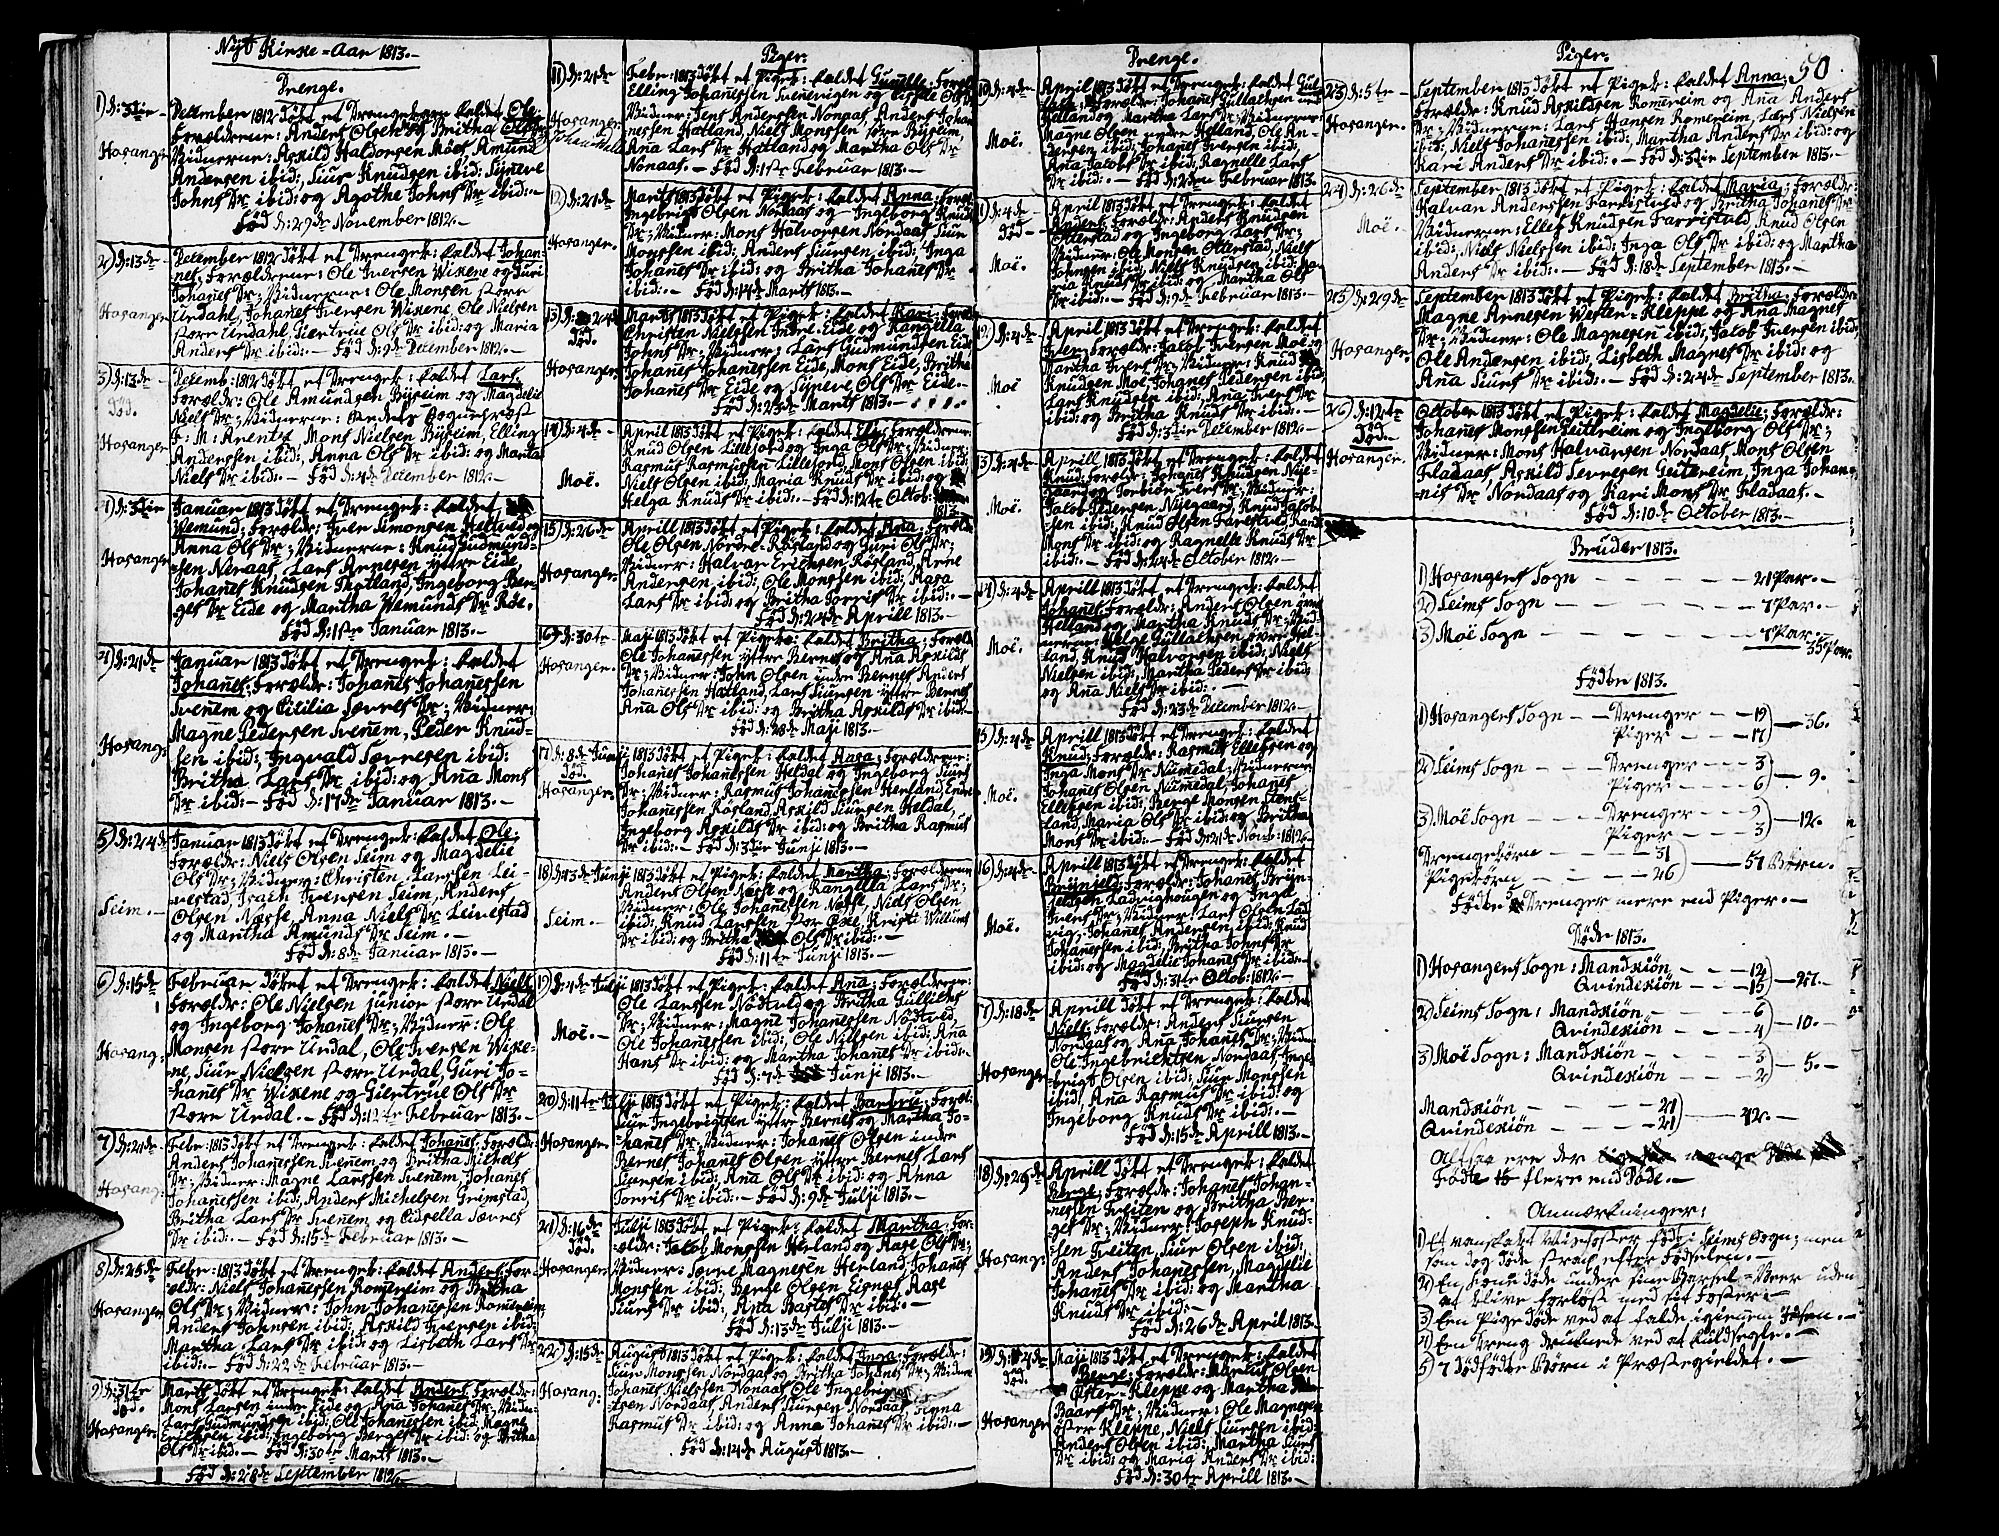 Nÿt Kirke-Aar 1813.-
Drenge.
1) d: 3die
Hosanger
December 1812 døbt et Drengebarn kaldet Ole,
Forældrene: Anders Olsen og Britha
Vidnerne: Askild Haldorsen Moes Amund
Andersen ibid:, Siur Knudsen ibid: Synneve
Johns Dr ibid: og Agathe Johns Dr ibid:-
Fød d: 29de November 1812.-
2) d: 13de
Hosanger
December 1812 døbt et Drengeb: kaldet Johan-
nes, Forældrene: Ole Iversen Wikene og Guri
Johanes Dr; Vidnerne: Ole Monsen store
Urdahl, Johanes Iversen Wikene, Ole Nielsen
store Urdahl, Giertrue Ols Dr ibid: og Maria
Anders Dr ibid:- Fød d: 9de December 1812.-
3) d: 13de
død.
Hosanger
Decemb: 1812 døbt et Drengeb: kaldet Lars
Forældr: Ole Amundsen Byseim og Magdelie
Niels Dr; Vidnerne:
F: M: Arentz, Mons Nielsen Byseim, Elling
Anderssen ibid:, Anna Ols Dr ibid: og Marita
Niels Dr ibid:- Fød d: 4de December 1812.-
4) d: 3die
Hosanger
Januar 1813 døbt et Drengeb: kaldet
Wemund; Forældr: Iver Simonsen Heltved og
Anna Ols Dr; Vidnerne: Knud Gudmund-
sen Nenaas, Lars Annesen yttre Eide,
Johanes Knudsen Thotland, Ingeborg Ber-
ges Dr Eide og Martha Wemunds Dr Röe.
Fød d: 1ste Januar 1813.-
4) d: 21de
Hosang:
Januar 1813 døbt et Drengeb: kaldet
Johanes; Forældr: Johanes Johanessen
Tvenem og Cicilia Sævres Dr; Vidner:
Magne Pedersen Tvenem, Peder Knud-
sen ibid:, Ingvald Sævresen ibid:
Britha Lars Dr ibid: og Ana Mons
Dr ibid:- Fød d: 17de Januar 1813.-
5) d: 24de
Seim.-
Januar 1813 døbt et Drengeb: kaldet Ole;
Forældr: Niels Olsen Seim og Magdelie
Ols Dr; Vidner: Christen Larssen Lei-
vestad, Isach Iversen Seim, Anders
Olsen Næsse, Anna Niels Dr Leivestad
og Martha Amunds Dr Seim.-
Fød d: 8de Januar 1813.-
6) d: 15de
Hosang:
Februar døbt et Drengeb: kaldet Niels
Forældr: Ole Nielsen junior store Urdal
og Ingeborg Johanes Dr; Vidner: Ole
Monsen store Urdal, Ole Iversen Wike-
ne, Siur Nielsen store Urdal, Guri Jo-
hanes Dr Wikene og Giertrue Ols Dr
store Urdal.- Fød d: 12te Februar 1813.-
7) d: 21de
Hosang:
Febr: 1813 døbt et Drengeb: kaldet Johanes; Forældr:
Anders Johanessen Tvenem og Britha Michels
Dr; Vidner: Magne Larssen Tvenem, Johanes
Johanessen ibid:, Anders Michelsen Grimstad,
Britha Lars Dr Tvenem og Cidsella Sævres
Dr ibid:.- Fød d: 15de Februar 1813.-
8) d: 25de
Hosanger
Febr: 1813 døbt et Drengeb: kaldet Anders; For-
ældr: Niels Johanessen Romereim og Britha
Ols Dr; Vidner: John Johanessen Romereim,
Anders Johnsen ibid:, Askild Iversen ibid:,
Martha Lars Dr ibid: og Lisbeth Lars Dr
ibid:.- Fød d: 22de Februar 1813.-
9) d: 31te
død.
Hosanger
Marts døbt et Drengeb: kaldet Anders, Forældr:
Mons Larsen indre Eide og Ana Johanes Dr; Vidn:
Lars Gudmundsen ibid:, Ole Johanessen ibid, Magne
Erichsen ibid:, Ingeborg Berges Dr ibid: og Britha
Ols Dr ibid.- Fød d: 30te Marts 1813.-
Fød d: 28de September 1812.-
Piger.
11) d: 21de
Hosanger
Febr: 1813 døbt et Pigeb: kaldet Gunille: Forældr:
Elling Johanessen Tvenevigen og Sissele Ols Dr
Vidner: Jens Anderssen Nonaas, Anders Johan-
nessen Hatland, Niels Monssen store Byseim,
Ana Lars Dr Hatland og Martha Ols Dr
Nonaas.- Fød d: 1ste Februar 1813.-
12) d: 21de
Hosanger
Marts 1813 døbt et Pigeb: kaldet Anna; Forældr:
Ingebrigt Olsen Nordaas og Ingeborg Knuds
Dr; Vidner: Mons Halvorsen Nordaas, Siur
Monssen ibid: Anders Siursen ibid:, Inga
Johanes Dr ibid: og Britha Johanes Dr
ibid:.- Fød d: 14de Marts 1813.-
13) d: 24de
død.
Hosanger
Marts 1813 døbt et Pigeb: kaldet Kari: Forældr:
Christen Nielssen Indre-Eide og Rangella
Johns Dr; Vidner: Lars Gudmundsen Eide
Johanes Johanessen Eide, Mons Eide, Britha
Johanes Dr Eide og Synneve Ols Dr Eide.-
Fød d: 23de Marts 1813.-
14) d: 4de
Moë.
April 1813 døbt et Pigeb: kaldet Elis; Forældrene:
Knud Olsen Lillefosd og Inga Ols Dr; Vidner:
Rasmus Rasmussen Lillefosd, Mons Olsen ibid:
Niels Olsen ibid, Maria Knuds Dr ibid: og
Helga Knuds Dr ibid:.- Fød d: 12te Octob:
1813.
15) d: 26de
Hosanger
Aprill 1813 døbt et Pigeb: kaldet Ana; Forældr:
Ole Olsen Nordre-Røsland og Guri Ols Dr;
Vidner: Halvar Erichsen Røsland, Arne
Andersen, ibid:, Ole Monssen ibid: Aasa
Lars Dr ibid: og Britha Torris Dr ibid:.-
Fød d: 24de Aprill 1813.-
16) d: 30te
Hosanger.
Maji 1813 døbt et Pigeb: kaldet Britha; Forældr:
Ole Johanessen yttre Bernes og Ana Askilds
Dr; Vidner: John Olsen indre Bernes Anders
Johanessen Hatland, Lars Siursen yttre Bernes
Ana Ols Dr ibid: og Britha Askilds Dr ibid:-
Fød d: 28de Maji 1813.-
17) d: 8de Junji
død.
Hosanger.
1813 døbt et Pigeb: kaldet Aasa; Forældrene:
Johanes Johanessen Heldal og Ingeborg Siurs
Dr; Vidner: Rasmus Johanessen Herland,
Johanessen Røsland, Askild Siursen Heldal,
Ingeborg Askilds Dr ibid: og Britha Rasmus
Dr ibid:.- Fød d: 3die Junji 1813.-
18) d: 13de Junji
Seim.-
1813 døbt et Pigeb: kaldet Martha; Forældrene
Anders Olsen Næsse og Rangella Lars Dr;
Vidner: Ole Johanessen Næsse, Niels Olsen
ibid: Knud Larssen store Oxe, Kristi Willums
Dr ibid: og Britha Ols Dr ibid:.-
Fød d: 11te Junji 1813.-
19) d: 4de Julji
Moë.-
1813 døbt et Pigeb: kaldet Ana; Forældrene:
Ole Larssen Nødtvet og Britha Gulliks
Dr; Vidner: Magne Johanessen Nødtved
Ole Johanessen ibid:, Ole Nilssen ibid:, Ana
Hans Dr ibid: og Martha Johanes Dr ibid:-
Fød d: 7de Junji 1813.-
20) d: 11te Julji
Hosanger.
1813 døbt et Pigeb: kaldet Barbru; Foræl:
Siur Ingebrigtsen yttre Bernes og Martha Jo-
hanes Dr; Vidner: Johanes Olsen indre
Bernes Johanes Olsen yttre Bernes Lars
Siursen ibid:, Ana Ols Dr ibid: og Anna
Torris Dr ibid:.- Fød d: 9de Julji 1813.-
21) d: 16de
død.
Hosanger
Julji 1813 døbt et Pigeb: kaldet Martha; For-
ældr: Jacob Monssen Herland og Aase Ols Dr;
Vidner: Sævre Magnesen Herland, Johanes
Monssen ibid: Berge Olsen Eisnes, Aase
Siurs Dr ibid:, Ana Bastes Dr ibid:.-
Fød d: 13de Julji 1813.-
22) d: 15de
Hosang:
August 1813 døbt et Pigeb: kaldet Inga; Forældr:
Siur Monssen Nordaas og Britha Johanes Dr; Vidne
Johanes Nielssen Nonaas, Ole Ingebrig-
tsen Nordaas Anders Siursen Nordaas Segna
Rasmus Dr ibid: og Anna Johanes Dr ibid:.-
Fød d: 14de August 1813.-
Drenge.
10) d: 4de
Moë.
April 1813 døbt et Drengeb: kaldet
Forældr: Johanes Gullachsen indre
Helland og Martha Lars Dr; Vidnerne:
Magne Olsen indre Helland, Ole An-
dersen ibid:, Johanes Iversen ibid:,
Ana Jacobs Dr ibid: Ragnelle Lars
Dr ibid:.- Fød d: 2den Februar 1813.
11) d: 4de
død
Moë.
April 1813 døbt et Drengeb: kaldet
Anders, Forældr: Anders Knudsen
Otterstad og Ingeborg Lars Dr;
Vidner: Ole Monsen Otterstad, Niels
Johnsen ibid, Niels Knudsen ibid: Ma-
ria Knuds Dr ibid: og Martha Ols
Dr ibid:.- Fød d: 9de Februar 1813.-
12) d: 4de
Moë
April 1813 døbt et Drengeb: kaldet
Iver; Forældr: Jacob Iversen Moë og
Martha Ivers Dr; Vidner: Knud
Knudsen Moë, Johanes Pedersen ibid:
Lars Knudsen ibid:, Ana Ivers Dr
ibid: og Britha Knuds Dr ibid:.-
Fød d: 3die December 1812.-
13) d: 4de
Moë.
Aprill 1813 døbt et Drengeb: kaldet
Knud; Forældr: Johanes Knudsen Nye-
gaard og Torbiør Ivers Dr; Vidner:
Jacob Pedersen Nyegaard, Knud Jacob-
sen ibid:, Knud Olsen Farestvedt, Randi
Mons Dr ibid: og Ragnelle Knuds Dr
ibid:.- Fød d: 24de October 1812.-
14) d: 4de
Moë.
Aprill 1813 døbt et Drengeb: kaldet
Johanes; Forældr: Anders Olsen øvre
Helland og Martha Knuds Dr; Vid-
nerne: Helge Gullachsen øvre Hel-
land, Knud Halvorsen ibid:, Niels
Nielsen ibid:, Maritha Peders Dr ibid:
og Ana Niels Dr ibid:.-
Fød d: 23de December 1812.-
15) d: 4de
Moë.
Aprill 1813 døbt et Drengeb: kaldet
Knud; Forældr: Rasmus Ellingsen og
Inga Mons Dr Numedal; Vidnerne
Johanes Olsen Numedal, Johanes
Ellingsen ibid:, Berge Monsen Stens-
land, Maria Ols Dr ibid: og Britha
Mons Dr ibid:.- Fød d: 21de Novb: 1812.-
16) d: 4de
Moë.
Aprill 1813 døbt et Drengeb: kaldet
Brynild; Forældr: Johanes Bryn-
ieldsen Ladvighougen og Inga
Ivers Dr; Vidner: Lars Olsen Lad-
vig, Johanes Andersen ibid:, Knud
Johanessen ibid:, Britha Johns Dr
ibid: og Magdelie Johanes Dr ibid:.-
Fød d: 31te Octob: 1812.-
17) d: 18de
Hosanger
Aprill 1813 døbt et Drengeb: kaldet
Niels, Forældr: Anders Siursen
Nordaas og Ana Johanes Dr; Vidn:
Ole Ingebrichtsen, Nordaas, Inge-
brigt Olsen ibid:, Siur Monssen
ibid, Ana Rasmus Dr ibid: og
Ingeborg Knuds Dr ibid:.-
Fød d: 15de Aprill 1813.-
18) d: 29de
Hosang:
Aprill døbt et Drengeb: kaldet
Berge; Forældr: Johanes Johan-
nessen Tveiten og Britha Ber-
ges Dr; Vidner: Joseph Knud-
sen Tveiten, Siur Olsen ibid:,
Anders Johanessen, Magdelie
Johanes Dr ibid: og Martha
Knuds Dr ibid:.-
Fød d: 26de April 1813.-
19) d: 4de
død.
Hosanger
Maji 1813 døbt et Drengeb: kaldet
Berge; Forældr: Markus Olsen
Øster-Kleppe og Martha
Baars Dr; Vidner: Ole Magnesen
Øster Kleppe, Niels Siursen ibid:
Anders Olsen ibid: Martha Siurs
Dr ibid: og Maria Anders Dr ibid:
Fød d: 30te Aprill 1813.-
Piger.
50.
23) d: 5te
Hosanger.
September 1813 døbt et Pigeb: kaldet Anna;
Forældr: Knud Askildsen Romereim og Ana Anders
Dr; Vidnerne: Lars Hansen Romereim, Lars Nielsen
ibid:, Niels Johanessen ibid:, Martha Anders Dr ibid: og
Kari Anders Dr ibid:.- Fød d: 3die September 1813.-
24) d: 26de
Moë.
September 1813 døbt et Pigeb: kaldet Maria; Forældr:
Halvar Anderssen Farrestved og Britha Johanes Dr
Vidnerne: Ellef Knudsen Farrestvld, Knud Olsen
ibid:, Niels Nielssen ibid: Inga Ols Dr ibid: og Martha
Anders Dr ibid:.- Fød d: 18de September 1813.-
25) d: 29de
Hosanger.
September 1813 døbt et Pigeb: kaldet Britha; Forældr:
Magne Annesen Wester-Kleppe og Ana Magnes
Dr; Vidner: Ole Magnesen ibid:, Jacob Iversen ibid:,
Ole Andersen ibid: Lisbeth Magnes Dr ibid: og
Ana Siurs Dr ibid:.- Fød d: 24de September 1813.
26) d: 12te
død.-
Hosanger.
October 1813 døbt et Pigeb: kaldet Magdelie; Forældr:
Johanes Monssen Geitreim og Ingeborg Ols Dr;
Vidner: Mons Halvarsen Nordaas, Mons Olsen
Fladaas, Askild Sevresen Geitreim, Inga Johan-
nes Dr Nordaas og Kari Mons Dr Fladaas.-
Fød d: 10de October 1813.-
Bruder 1813.
1) Hosangers Sogn - 21 Par.-
2) Seims Sogn - 7 Par.-
3) Moë Sogn - 7 Par.
35 Par.
Fødte 1813.
1) Hosangers Sogn - Drenger - 19
Piger - 17) - 36.
2) Seims Sogn - Drenger - 3
Piger - 6) - 9.
3) Moë Sogn - Drenger - 9
Piger - 3) - 12.
Drengebørn - 31
Pigebørn - 26) - 57 Børn.
Fødte 5 Drenger mere end Piger.-
Døde 1813.
1) Hosangers Sogn: Mandkiøn - 12
Qvindekiøn - 15) - 27.
2) Seims Sogn: Mandkiøn - 6
Qvindekiøn - 4) - 10.
3) Moë Sogn: Mandkiøn - 3
Qvindekiøn - 2) - 5.
Mandkiøn - 21
Qvindekiøn - 21) - 42.
Altsaa ere der
Fødte 15 flere end Døde.-
Anmærkninger:
1) Et vanskabt Misfoster født i Seims Sogn; men
som dog døde strax efter Fødselen.-
2) En Kone døde under sine Barsel-Veer uden
at blive forløst med sit Foster.-
3) En Pige døde ved at falde igienem Jisen.-
4) En Dreng druknede ved at Kuldsegle.-
5) 7 Dødfødte Børn i Præstegieldet.-